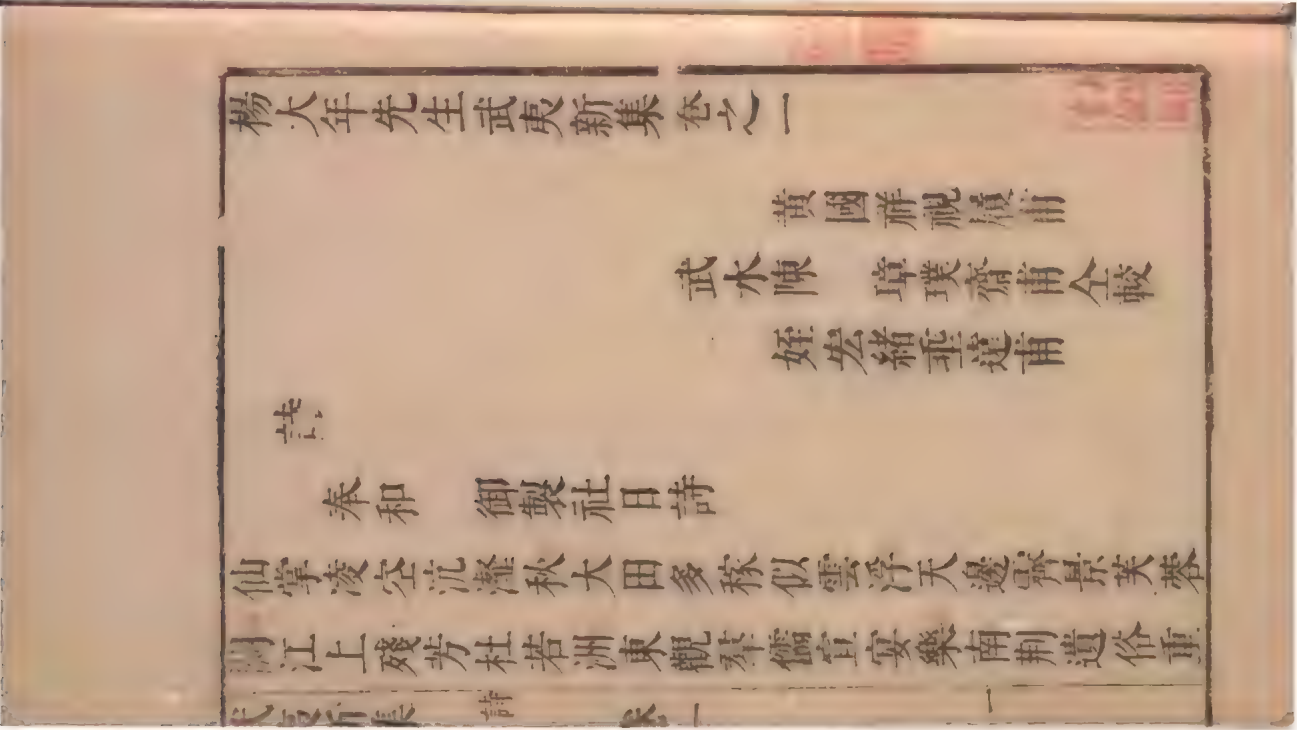 楊大年先生武夷新集卷之一
黃國祥視履甫
武水陳 璋璞齋甫仝較
姪宏緒垂遠甫
詩
奉和 御製社日詩
仙掌凌空沆瀣秋大田多稼似雲浮天邊霽景芙蓉
江上殘芳杜若洲東觀羣儒宜宴樂南荆遺俗重
武夷新集 詩 卷一 一